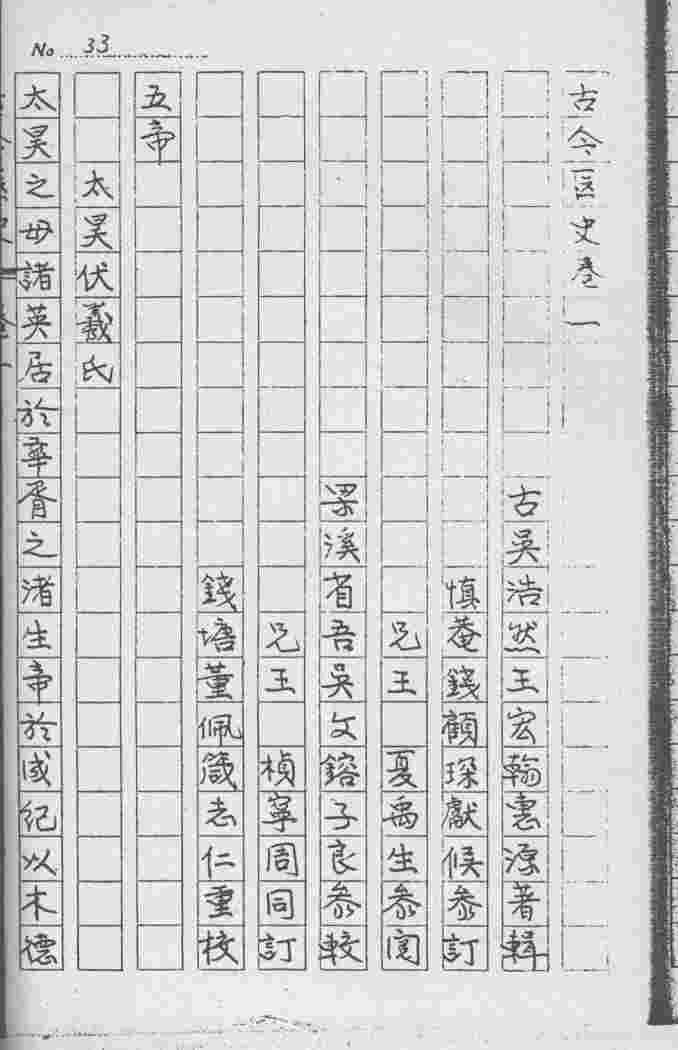 No 33
古今区史卷一
古吳浩然王宏翰惠源著輯
慎菴錢顧琛獻候參訂
兄王 夏禹生參閱
梁溪省吾吳文鎔子良參較
兄王 楨寧周同訂
錢塘董佩箴志仁重校
五帝
太昊伏羲氏
太昊之母諸英居於華胥之渚生帝於成紀以木德